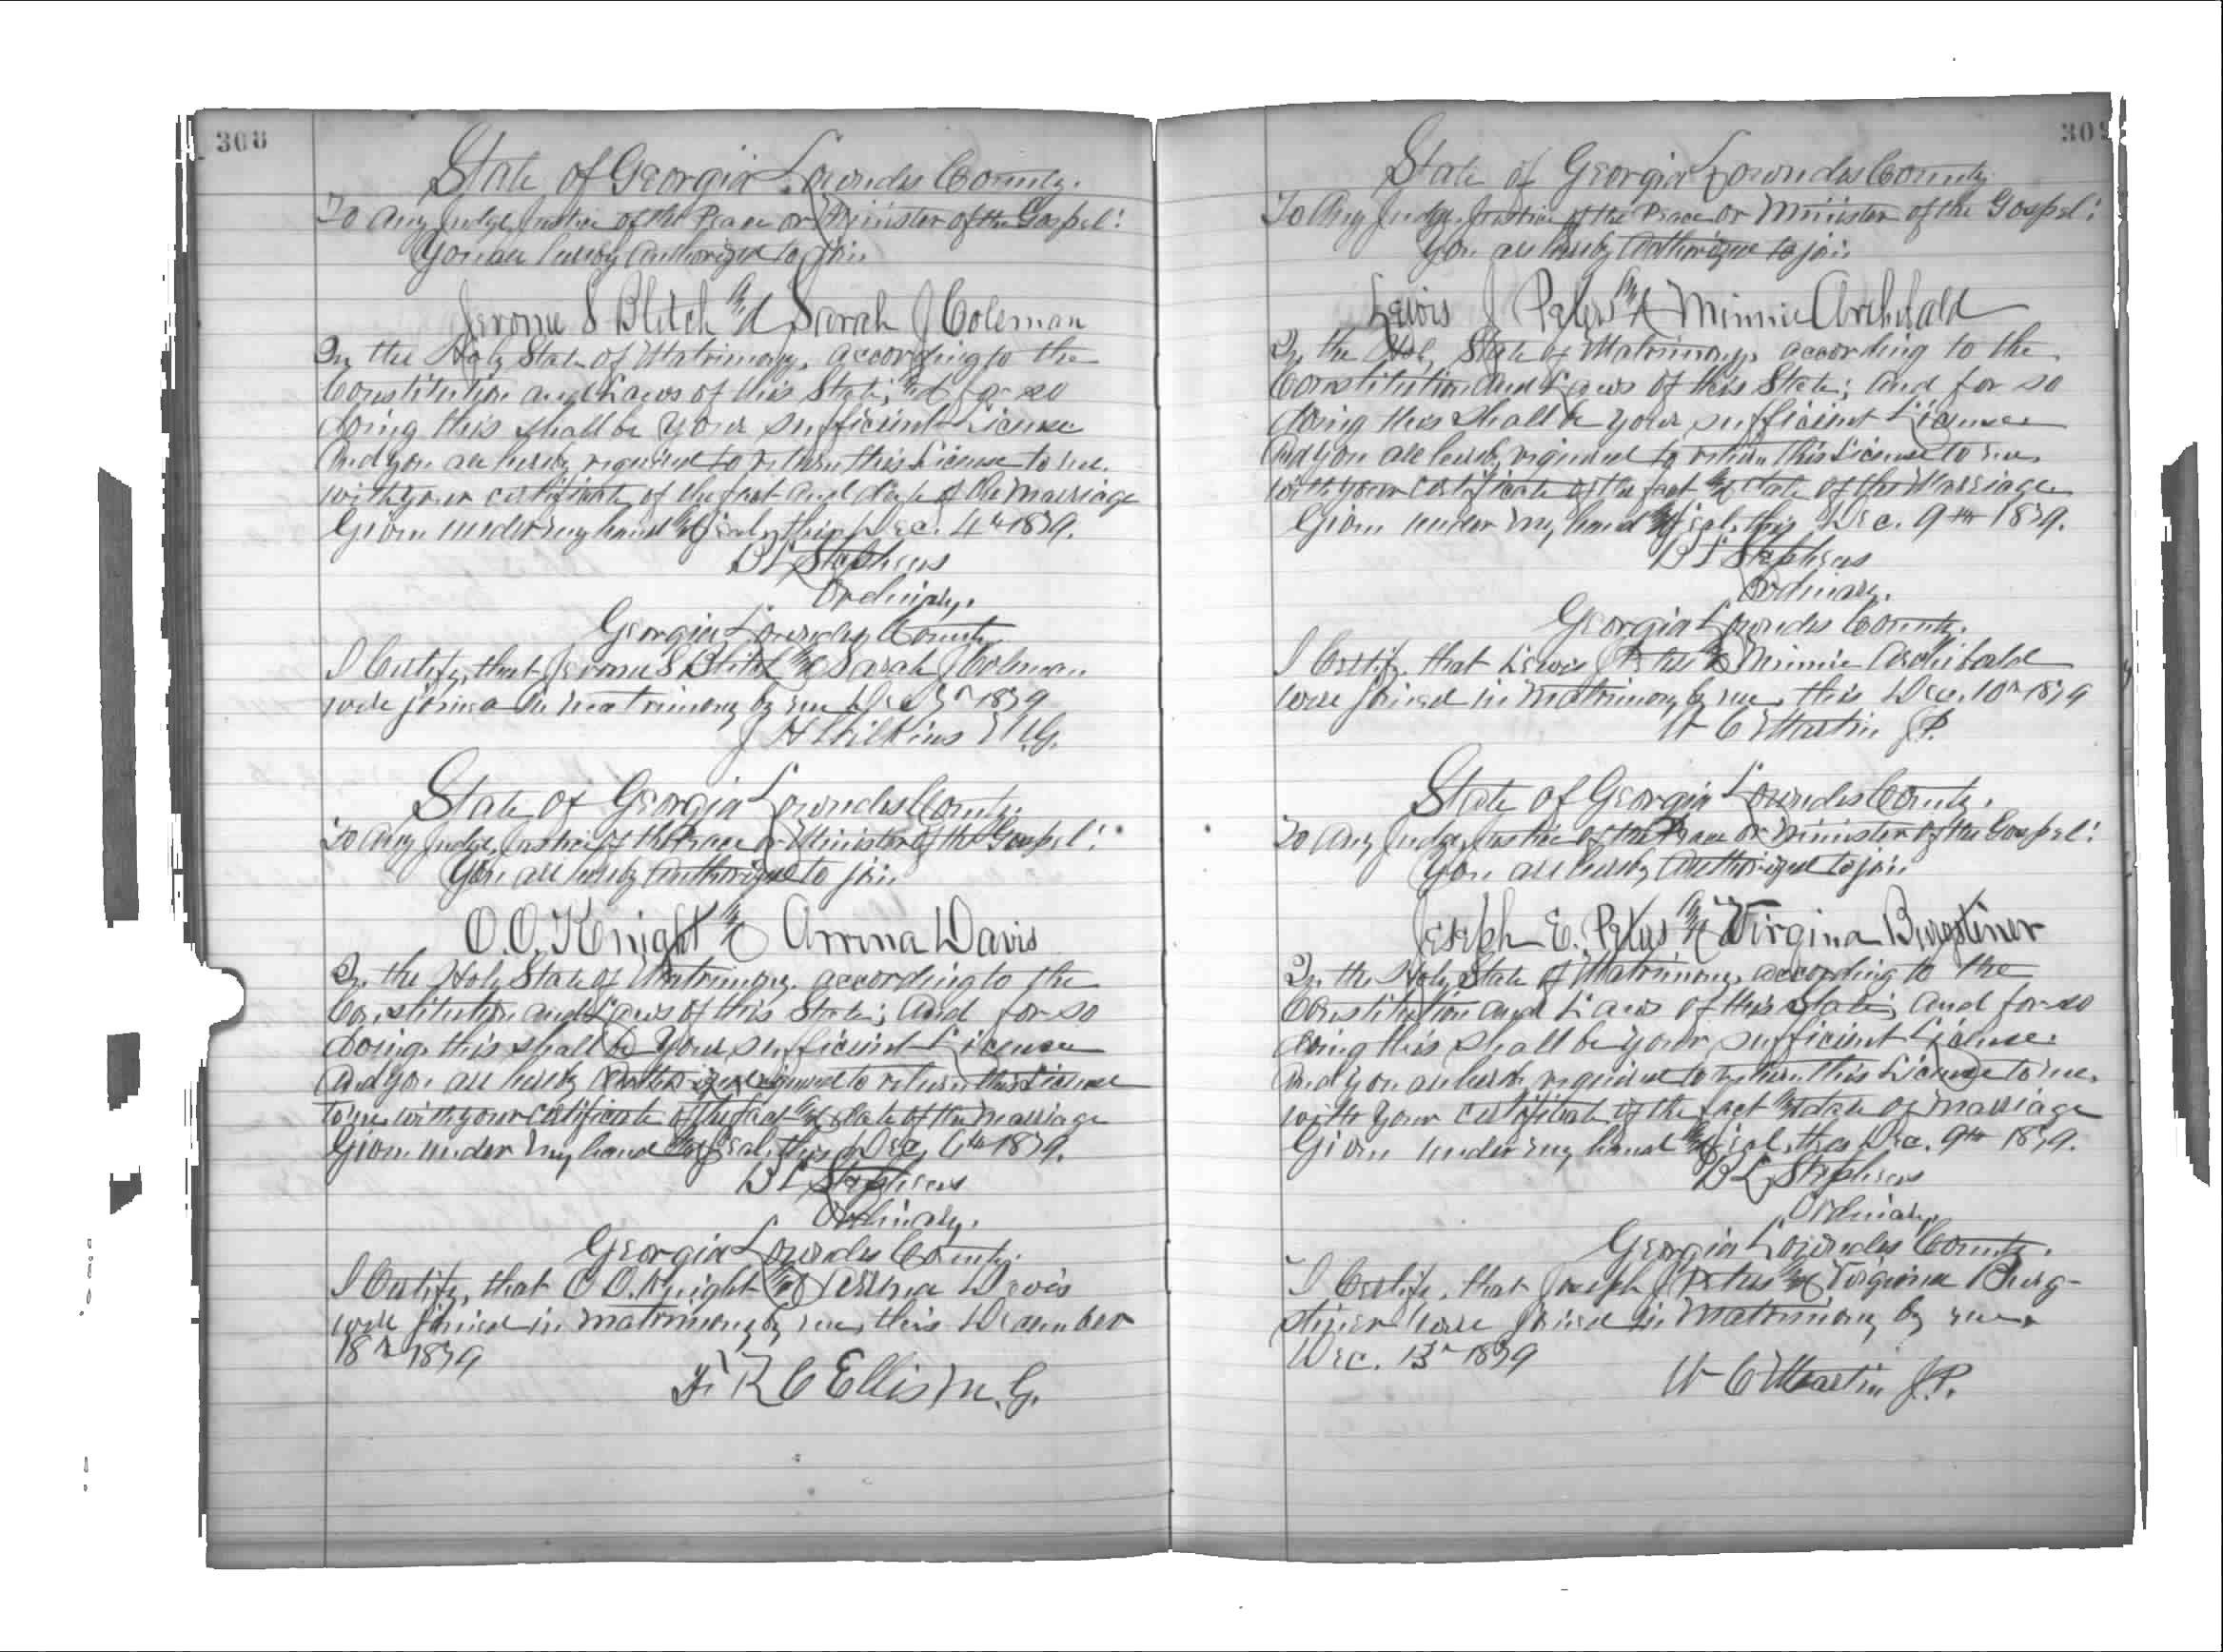 308
State of Georgia Lowndes County.
To Any Judge, Justice of the Peace or Minister of the Gospel:
You are hereby Authorized to join
Jerome S Blitch And Sarah J Coleman
In the Holy State of Matrimony, according to the
Constitution and Laws of this State; And for so
doing this shall be your sufficient License
And you are hereby required to return this License to me.
with your certificate of the fact and date of the marriage
Given under my hand And Seal, this Dec. 4th 1879.
B L Stephens
Ordinary.
Georgia Lowndes County
I Certify, that Jerome S Blitch And Sarah J Coleman
were joined in matrimony by me Dec 1879
J H Wilkins M.G.
State of Georgia Lowndes County.
To Any Judge, Justice of the Peace or Minister of the Gospel:
You are hereby Authorized to join
O.O. Knight And Arrena Davis
In the Holy State of Matrimony, according to the
Constitution and Laws of this State; And for so
doing, this shall be your sufficient License
And you are hereby required to return this License
to me, with your certificate of the fact And date of the marriage
Given under my hand And Seal, this Dec 6th 1879.
B L Stephens
Ordinary.
Georgia Lowndes County.
I Certify, that O O. Knight And Davis
were joined in matrimony by me, this December
18th 1879
R C Ellis M.G.
State of Georgia Lowndes County
To Any Judge, Justice of the Peace or Minister of the Gospel:
You are hereby Authorized to join
Lewis J Peters And Minnie Archibald
In the Holy State of Matrimony, according to the
Constitution and Laws of this State; and for so
doing this shall be your sufficient License
And you are hereby required to return this License to me,
with your certificate of the fact And date of the Marriage
Given under my hand And Seal, this Dec. 9th 1879.
B L Stephens
Ordinary.
Georgia Lowndes County.
I Certify, that Lewis J Peters & Minnie Archibald
were joined in matrimony by me, this Dec. 10th 1879
W C Martin J.P.
State of Georgia Lowndes County.
To Any Judge, Justice of the Peace or Minister of the Gospel:
You are hereby Authorized to join
Joseph E. Petus And Virginia Burgstiner
In the Holy State of Matrimony, according to the
Constitution and Laws of this State; and for so
doing this shall be your sufficient License.
And you are hereby required to return this License to me,
with your certificate of the fact And date of marriage
Given under my hand And Seal, this Dec. 9th 1879.
B L Stephens
Ordinary.
Georgia Lowndes County.
I Certify, that Joseph J Petus And Virginia Burg-
stiner were joined in Matrimony by me,
Dec. 13th 1879
W C Martin J.P.